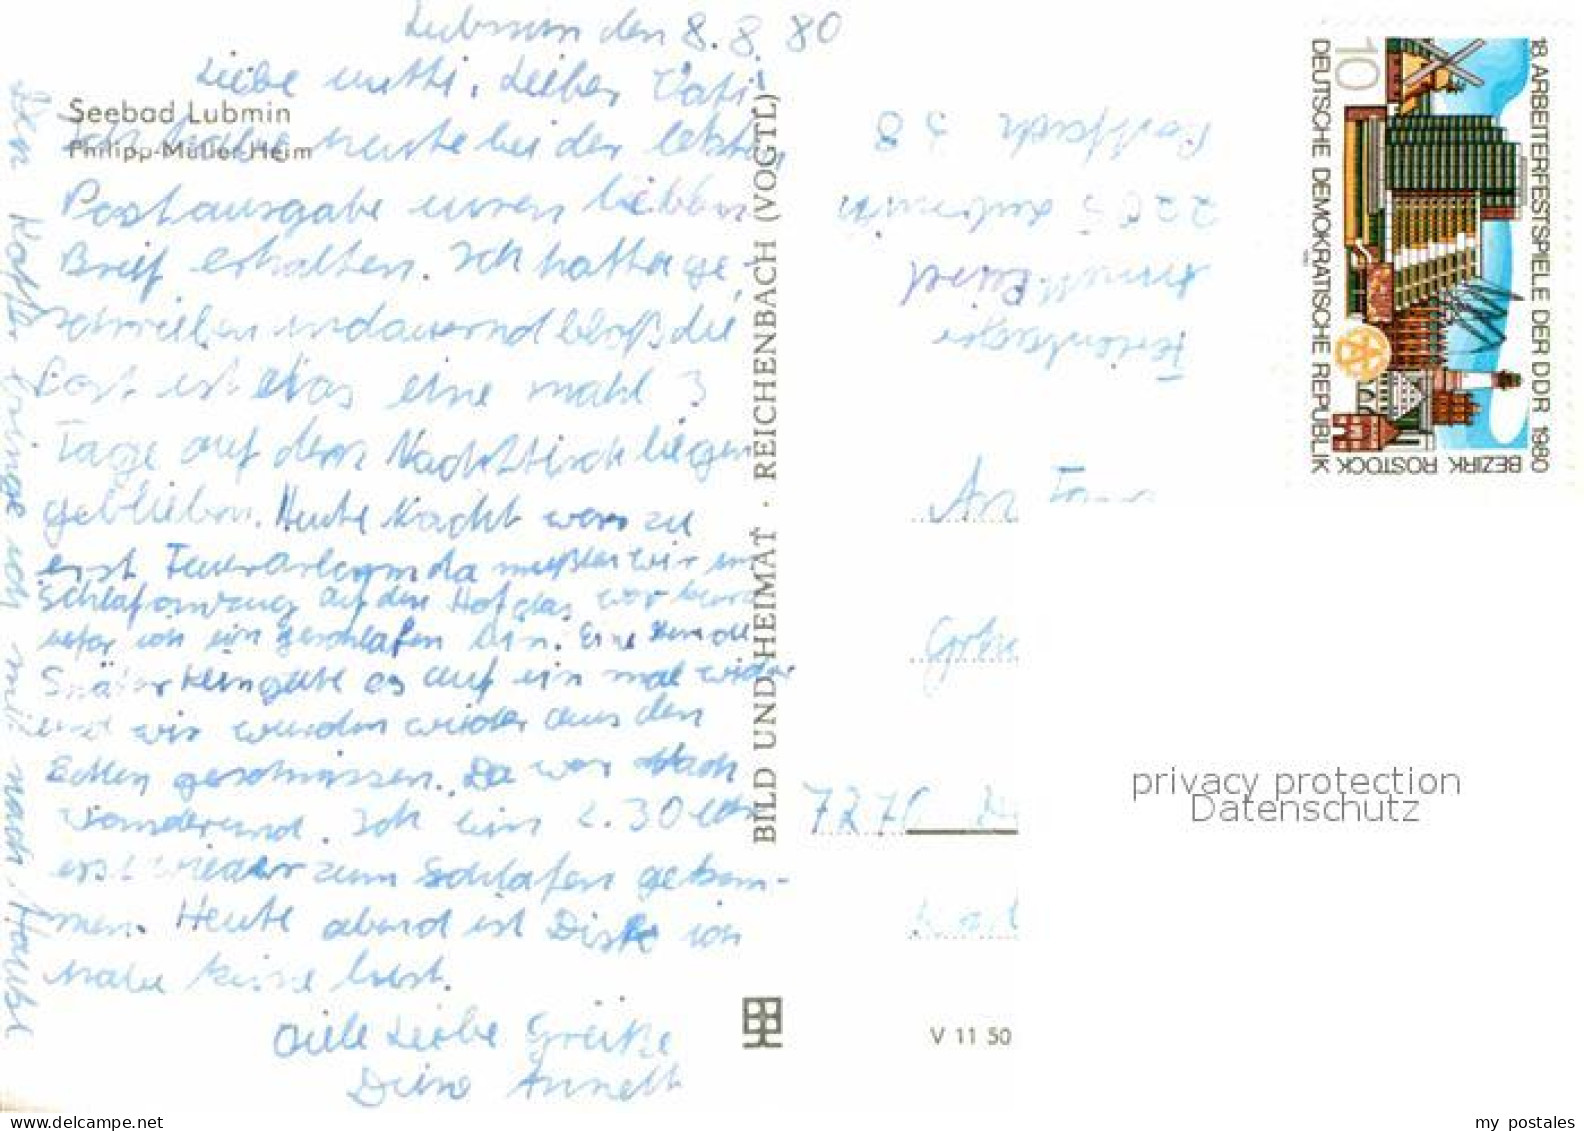 Lubmin den 8. 8. 80
Liebe Mutti, Lieber Vati!
Ich habe heute bei der letzten
Postausgabe euren lieben
Brief erhalten. Ich hatte ge-
schrieben undauernd bloß die
Post ist etas eine mahl 3
Tage auf dem Nachttisch liegen
geblieben. Heute Nacht war zu
erst Feuerarlarm da mußten wir im
Schlafanzug auf den Hof das war kurz
befor ich ein geschlafen bin. Eine Stunde
Später klingelte es auf ein mal wider
und wir wurden wieder aus den
Betten geschmissen. Da war Nach
wanderund. Ich bin 2.30 Uhr
erst wieder zum Schlafen gekom-
men. Heute abend ist Disko ich
habe keine lust.
Viele Liebe Grüße
Deine Annett
Den Koffer bringe ich mit nach Hause
Seebad Lubmin
Philipp-Müller-Heim
BILD UND HEIMAT · REICHENBACH (VOGTL)
V 11 50
Ferienlager
2205 Lubmin
Postfach 38
An Fam
7270
18. ARBEITERFESTSPIELE DER DDR 1980
BEZIRK ROSTOCK
DEUTSCHE DEMOKRATISCHE REPUBLIK
10
privacy protection
Datenschutz
my postales